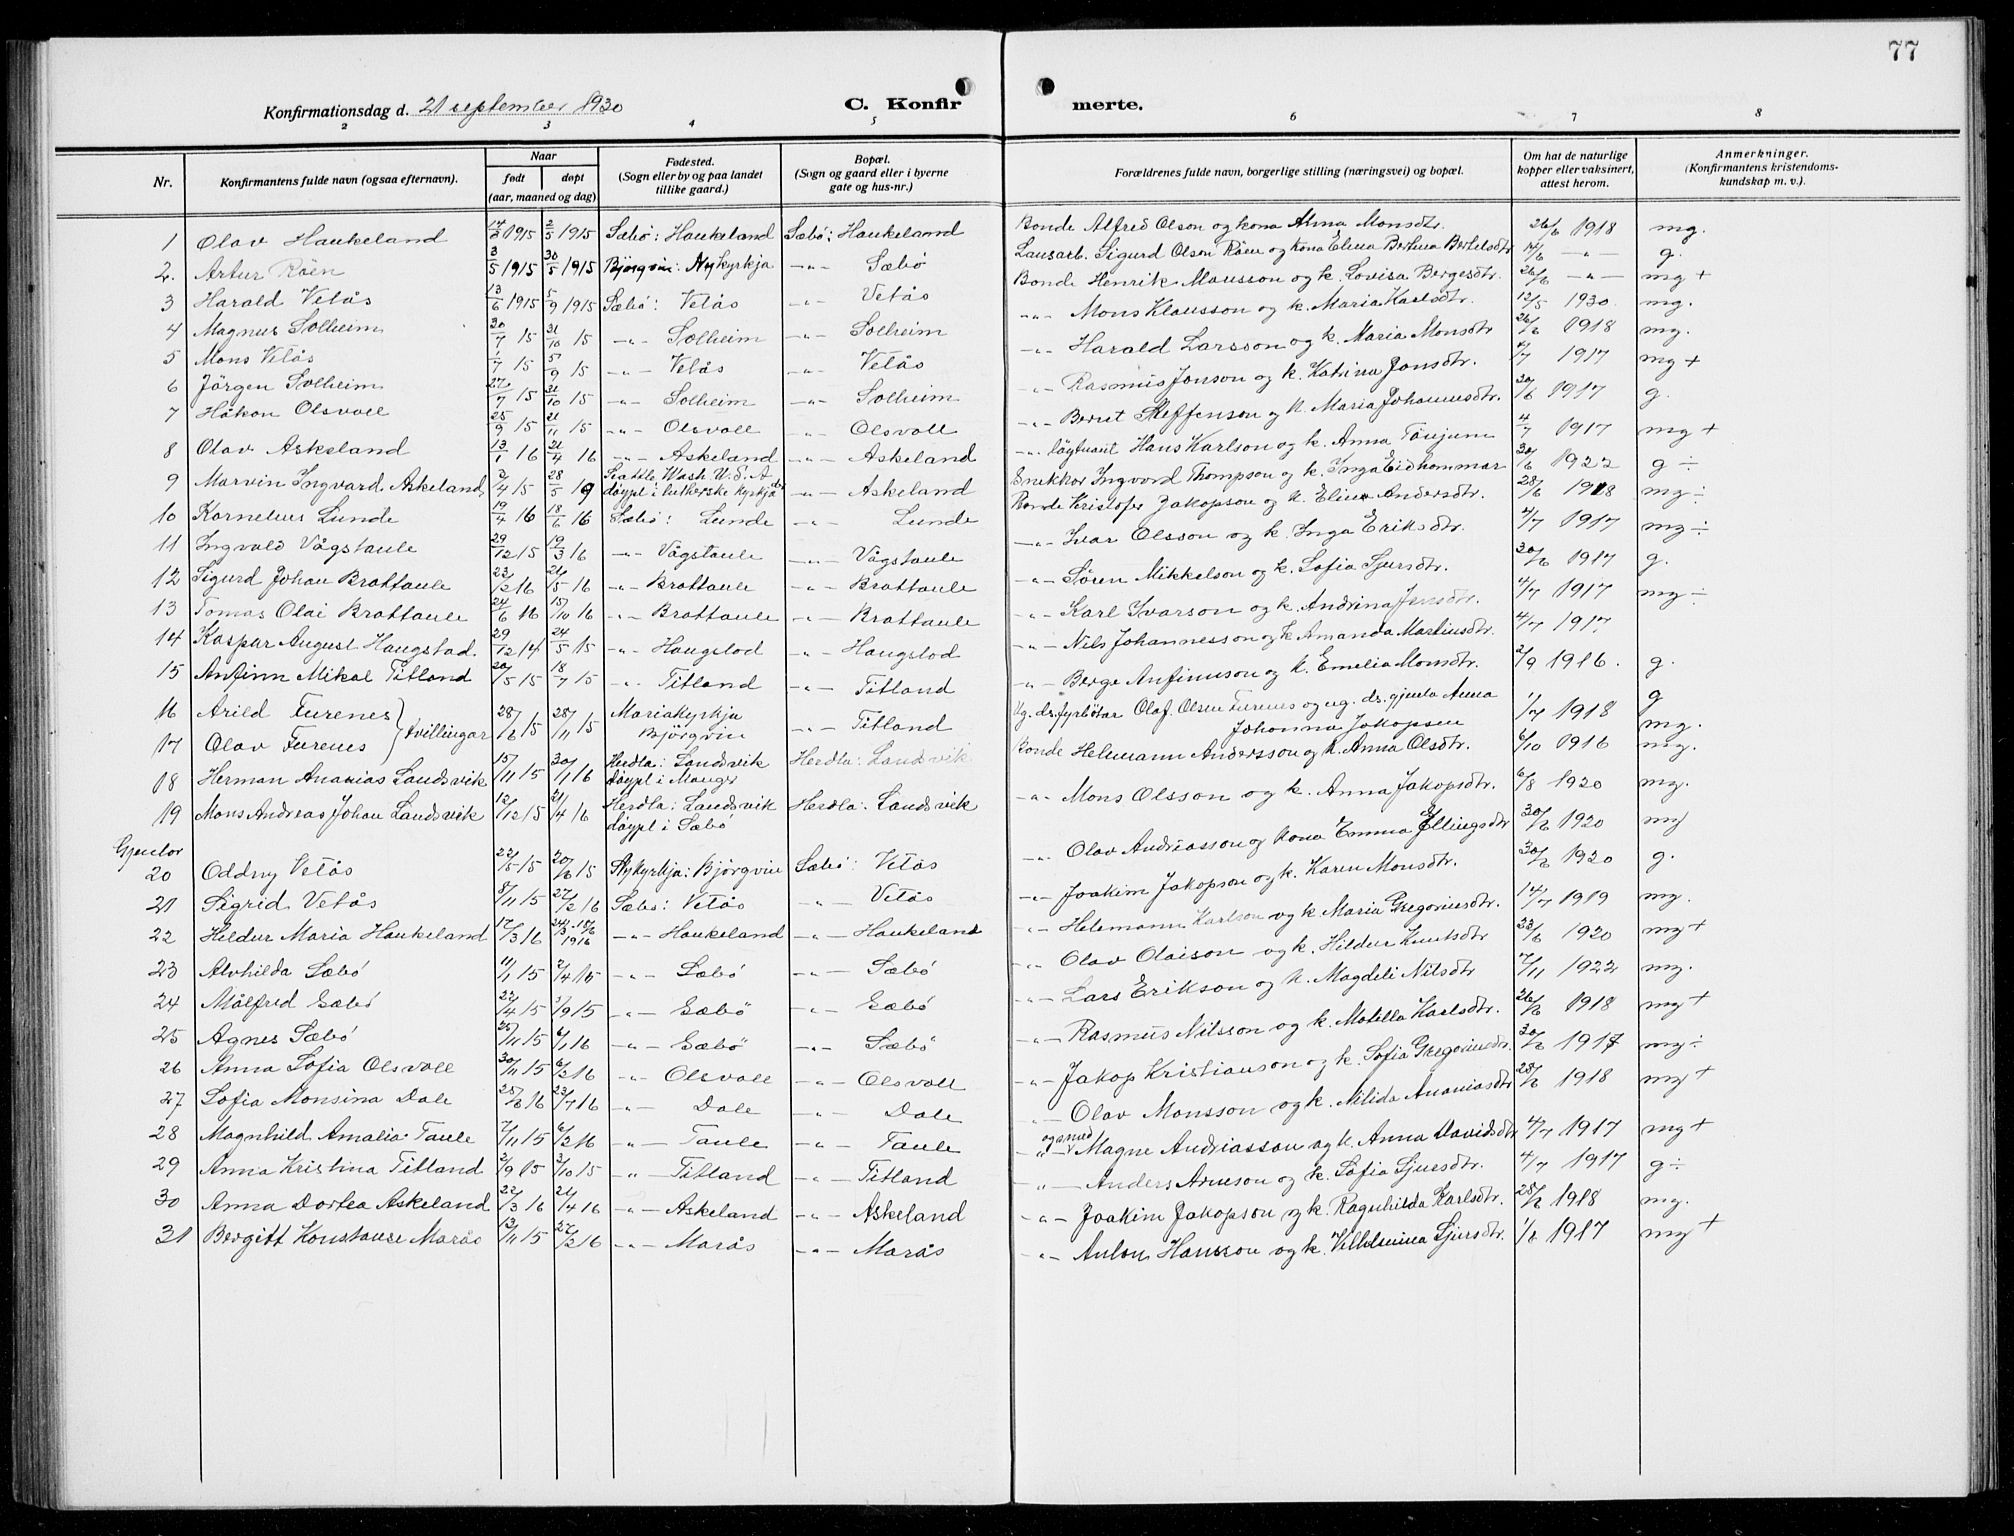 77
Konfirmationsdag d. 21 september 1930
C. Konfir merte.
2 3 4 5 6 7 8
Nr. Konfirmantens fulde navn (ogsaa efternavn). Naar født døpt (aar, maaned og dag) Fødested. (Sogn eller by og paa landet tillike gaard.) Bopæl. (Sogn og gaard eller i byerne gate og hus-nr.) Forældrenes fulde navn, borgerlige stilling (næringsvei) og bopæl. Om hat de naturlige kopper eller vaksinert, attest herom. Anmerkninger. (Konfirmantens kristendoms-kundskap m. v.).
1 Olav Haukeland 1915 2/5 1915 Sæbø: Haukeland Sæbø: Haukeland Bonde Alfred Olson og kona Anna Monsdtr. 26/6 1918 mg.
2. Artur Røen 3/5 1915 30/5 1915 Bjørgvin: Nykyrkja -"- Sæbø Lausarb. Sigurd Olsen Røen og kona Elina Bertina Bertelsdtr. -"- g.
3 Harald Vetås 13/6 1915 5/9 1915 Sæbø: Vetås -"- Vetås Bonde Henrik Monsson og k. Lovisa Bergesdtr. 26/6 -"- mg +
4 Magnus Solheim 30/7 15 31/10 15 -"- Solheim -"- Solheim -"- Mons Klausson og k. Maria Karlsdtr. 12/5 1930 mg.
5 Mons Vetås 1/7 15 5/9 15 -"- Vetås -"- Vetås -"- Harald Larsson og k. Maria Monsdtr 26/6 1918 mg.
6 Jörgen Solheim 27/7 15 31/10 15 -"- Solheim -"- Solheim -"- Rasmus Jonson og k. Katrina Jonsdtr. 4/7 1917 mg +
7 Håkon Olsvoll 25/9 15 21/11 15 -"- Olsvoll -"- Olsvoll -"- Bernt Steffenson og k. Maria Johannesdtr. 30/6 1917 g.
8 Olav Askeland 13/1 16 24/4 16 -"- Askeland -"- Askeland -"- løytnant Hans Karlson og k. Anna 4/7 1917 mg +
9 Marvin Ingvard Askeland 2/4 15 28/5 Seattle Wash. U.S.A. døypt i lutherske kyrkja -"- Askeland Snekkar Ingvord Thompson og k. Inga Eidhammar 30/6 1922 g ÷
10 Kornelius Lunde 19/4 16 18/6 16 Sæbø: Lunde -"- Lunde Bonde Kristofer Jakopson og k. Elina Andersdtr. 28/6 1918 mg ÷
11 Ingvald Vågstaule 29/12 15 19/3 16 -"- Vågstaule -"- Vågstaule -"- Ivar Olsson og k. Inga Eriksdtr. 4/7 1917 mg ÷
12 Sigurd Johan Brattaule 23/2 16 21/5 16 -"- Brattaule -"- Brattaule -"- Søren Mikkelson og k. Sofia Sjursdtr. 30/6 1917 g.
13 Tomas Olai Brattaule 24/6 16 15/10 16 -"- Brattaule -"- Brattaule -"- Karl Ivarson og k. Andrina Jensdtr. 4/7 1917 mg ÷
14 Kaspar August Haugstad. 29/12 14 24/5 15 -"- Haugstod -"- Haugstod -"- Nils Johannesson og k Amanda Martinsdtr. 4/7 1917.
15 Anfinn Mikal Titland 20/5 15 18/7 15 -"- Titland -"- Titland -"- Berge Anfinnson og k. Emelia Monsdtr. 2/9 1916. g.
16 Arild Furenes } tvillingar 28/6 15 28/11 15 Mariakyrkja Bjørgvin -"- Titland Ug. ds. fyrbøtar Olaf Olsen Furenes og ug. ds. gjenta Anna Johanna Jakopsen 1/7 1918 g
17 Olav Furenes mg.
18 Herman Ananias Landsvik 15/11 15 30/1 16 Herdla: Landsvik døypt i Manger Herdla: Landsvik Bonde Helemann Andersson og k. Anna Olsdtr. 6/10 1916 mg.
19 Mons Andreas Johan Landsvik 12/12 15 24/4 16 Herdla: Landsvik døypt i Sæbø Herdla: Landsvik -"- Mons Olsson og k. Anna Jakopsdtr. 6/8 1920 mg.
Gjentor
20 Oddny Vetås 22/5 15 20/6 15 Nykyrkja: Bjørgvin Sæbø: Vetås -"- Olav Andreasson og kona Emma Ellingsdtr 30/6 1920 mg
21 Sigrid Vetås 8/11 15 27/2 16 Sæbø: Vetås -"- Vetås -"- Joakim Jakopson og k. Karen Monsdtr. 30/6 1920 g.
22 Hildur Maria Haukeland 17/3 16 1916 -"- Haukeland -"- Haukeland -"- Helemann Karlson og k Maria Gregoriusdtr. 14/7 1919 mg.
23 Alvhilda Sæbø 11/1 15 2/4 15 -"- Sæbø -"- Sæbø -"- Olav Olaison og k. Hildur Knutsdtr 22/6 1920 mg +
24 Målfred Sæbø 22/4 15 5/9 15 -"- Sæbø -"- Sæbø -"- Lars Erikson og k. Magdeli Nilsdtr 7/11 1922 mg.
25 Agnes Sæbø 25/11 15 6/1 16 -"- Sæbø -"- Sæbø -"- Rasmus Nilsson og k. Motella Karlsdtr. 26/6 1918 mg +
26 Anna Sofia Olsvoll 30/11 15 6/2 16 -"- Olsvoll -"- Olsvoll -"- Jakop Kristianson og k. Sofia Gregoriusdtr. 30/6 1917 mg ÷
27 Sofia Monsina Dale 25/6 16 23/7 16 -"- Dale -"- Dale -"- Olav Monsson og k. Nilida Ananiasdtr 28/6 1918 mg +
28 Magnhild Amalia Taule 7/11 15 6/2 16 -"- Taule -"- Taule -"- og smed Magne Andreasson og k. Anna Davidsdtr 4/7 1917 mg +
29 Anna Kristina Titland 2/9 15 3/10 15 -"- Titland -"- Titland -"- Anders Arneson og k. Sofia Sjursdtr. 4/7 1917 g ÷
30 Anna Dortea Askeland 22/3 16 24/4 16 -"- Askeland -"- Askeland -"- Joakim Jakopson og k. Ragnhilda Karlsdtr. 28/6 1918 mg.
31 Bergitt Konstanse Marås 13/11 15 27/2 16 -"- Marås -"- Marås -"- Anton Hansson og k. Villelmina Sjursdtr. 1/6 1917 mg +